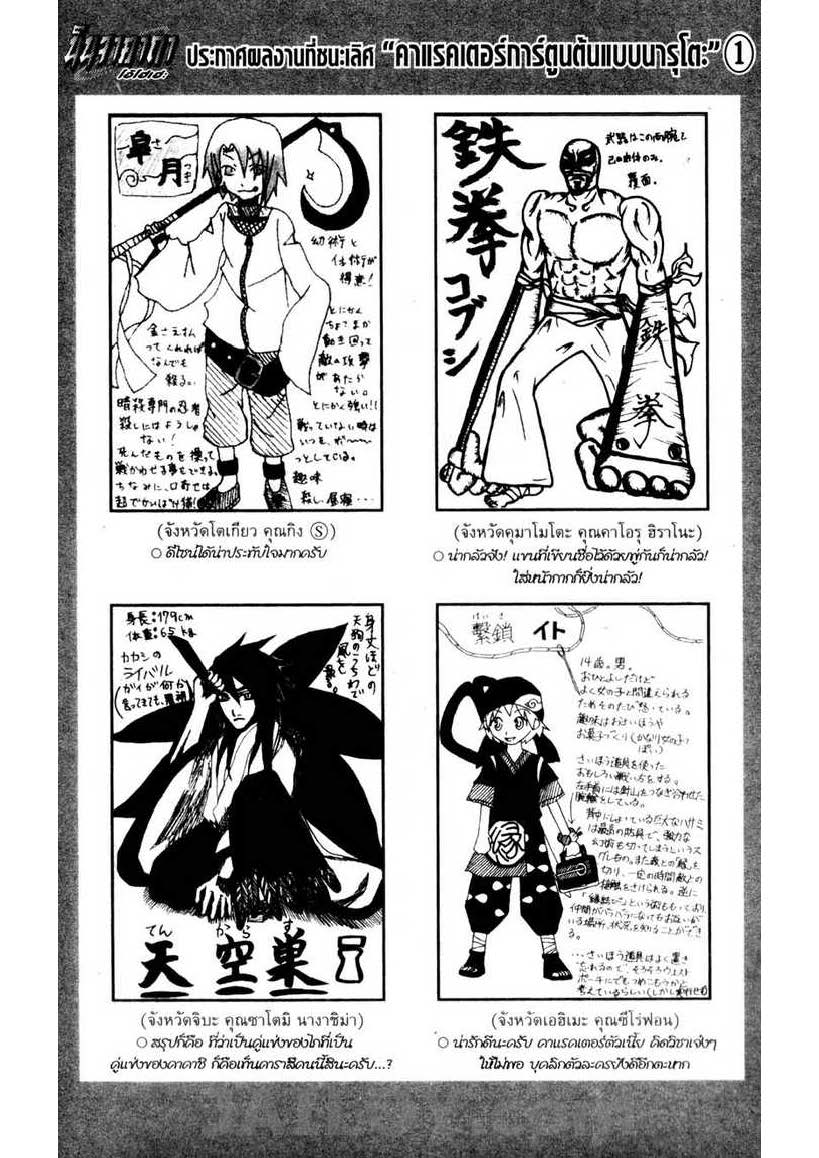 นินจาคาถา
โอ้โฮเฮะ
ประกาศผลงานที่ชนะเลิศ “คาแรคเตอร์การ์ตูนต้นแบบนารุโตะ” 1
皐月
さ
つき
幻術と
体術が
得意!
金さえ払
ってくれれば
なんでも
殺る。
暗殺専門の忍者
殺しにはようしゃ
ない!
死んだものを操って
戦かわせる事もできる。
ちなみに、口寄せは
とにかく
ちょこまか
動き回って
敵の攻撃
があたら
ない。
とにかく強い!!
戦っていない時は
いつも、ボ〜〜
っとしている。
趣味
殺し、昼寝・・・
(จังหวัดโตเกียว คุณกิง Ⓢ)
○ ดีไซน์ได้น่าประทับใจมากครับ
鉄拳
コブシ
武器はこの両腕と
己の肉体のみ。
覆面。
鉄拳
(จังหวัดคุมาโมโตะ คุณคาโอรุ ฮิราโนะ)
○ น่ากลัวจัง! แขนที่เขียนชื่อไว้ด้วยพู่กันก็น่ากลัว!
ใส่หน้ากากก็ยิ่งน่ากลัว!
身長:179cm
体重:65kg
カカシの
ライバル
(ガイが何か
言ってきても、無視)
身丈ほどの
天狗のうちわで
風を
てん から す
天空巣
(จังหวัดจิบะ คุณซาโตมิ นางาชิม่า)
○ สรุปก็คือ ที่ว่าเป็นคู่แข่งของไกที่เป็น
คู่แข่งของคาคาชิ ก็คือเท็นคาราสึคนนี้สินะครับ...?
けいさ
繋鎖 イト
14歳。男。
おひとよしだけど
よく女の子と間違えられる
ためそのたび怒っている。
趣味はおさいほうや
お菓子づくり(かなり女の子っ
ぽい)
さいほう道具を使った
おもしろい戦い方をする。
左手首には針山をつなぎ合わせた
腕輪をしている。
背中にしょっている巨大なハサミ
は最高の防具で、強力な
幻術も切ってしまうというス
グレもの。また敵との「縁」を
切り、一定の時間敵との
接触をさけられる。逆に
「縁結び」という術ももっており、
仲間がバラバラになってもお互いが
いる場所、状況を知ることができ
る。
...さいほう道具はよく置き
忘れるので、そろそろウェスト
ポーチにでもつめこもうかと
考えているらしい
縁
(จังหวัดเอฮิเมะ คุณซีโร่ฟอน)
○ น่ารักดีนะครับ คาแรคเตอร์ตัวเนี้ย คิดวิชาเจ๋งๆ
ให้ไม่พอ บุคลิกตัวละครยังดีอีกตะหาก